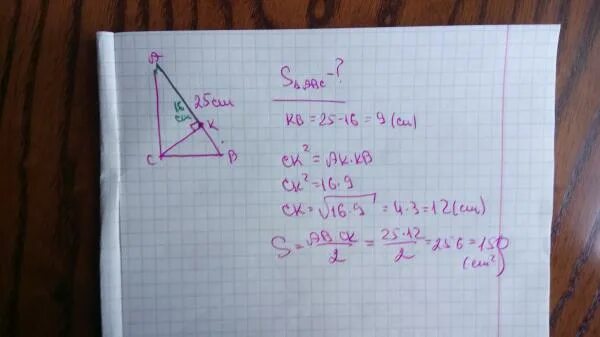 A
16 cm
25cm
K
C
B
S△ABC-?
KB = 25-16 = 9 (cm)
CK² = AK·KB
CK² = 16·9
CK = √16·9 = 4·3 = 12 (cm)
S = AB·CK/2 = 25·12/2 = 25·6 = 150 (cm²)